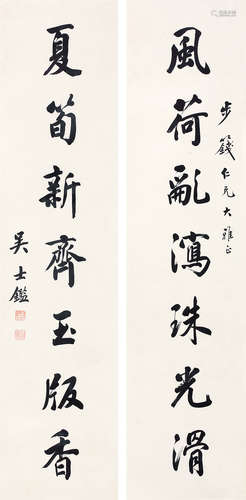 步籛仁兄大雅正
風荷亂瀉珠光滑
夏筍新齊玉版香
吳士鑑